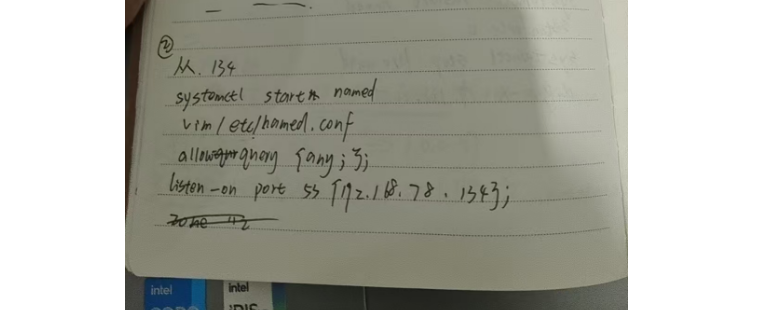 ②
从. 134
systemctl start named
vim /etc/named.conf
allow query {any; };
listen-on port 53 {192.168.78.134};
zone "2
intel
intel